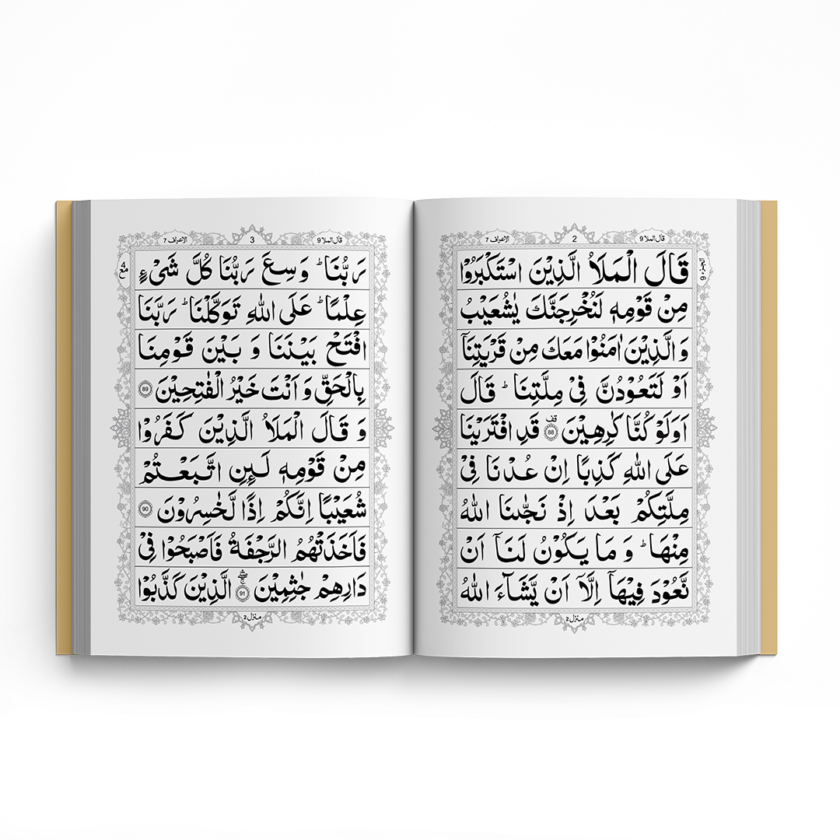 قال الملا 9
2
الاعراف 7
الجزء 9
قَالَ الْمَلَاُ الَّذِیْنَ اسْتَكْبَرُوْا
مِنْ قَوْمِهٖ لَنُخْرِجَنَّكَ یٰشُعَیْبُ
وَ الَّذِیْنَ اٰمَنُوْا مَعَكَ مِنْ قَرْیَتِنَاۤ
اَوْ لَتَعُوْدُنَّ فِیْ مِلَّتِنَاؕ قَالَ
اَوَلَوْ كُنَّا كٰرِهِیْنَ 88 قَدِ افْتَرَیْنَا
عَلَی اللّٰهِ كَذِبًا اِنْ عُدْنَا فِیْ
مِلَّتِكُمْ بَعْدَ اِذْ نَجّٰىنَا اللّٰهُ
مِنْهَاؕ وَ مَا یَكُوْنُ لَنَاۤ اَنْ
نَّعُوْدَ فِیْهَاۤ اِلَّاۤ اَنْ یَّشَآءَ اللّٰهُ
منزل 2
قال الملا 9
3
الاعراف 7
4
رَبُّنَاؕ وَسِعَ رَبُّنَا كُلَّ شَیْءٍ
عِلْمًاؕ عَلَی اللّٰهِ تَوَكَّلْنَاؕ رَبَّنَا
افْتَحْ بَیْنَنَا وَ بَیْنَ قَوْمِنَا
بِالْحَقِّ وَ اَنْتَ خَیْرُ الْفٰتِحِیْنَ 89
وَ قَالَ الْمَلَاُ الَّذِیْنَ كَفَرُوْا
مِنْ قَوْمِهٖ لَىِٕنِ اتَّبَعْتُمْ
شُعَیْبًا اِنَّكُمْ اِذًا لَّخٰسِرُوْنَ 90
فَاَخَذَتْهُمُ الرَّجْفَةُ فَاَصْبَحُوْا فِیْ
دَارِهِمْ جٰثِمِیْنَ 91 الَّذِیْنَ كَذَّبُوْا
منزل 2